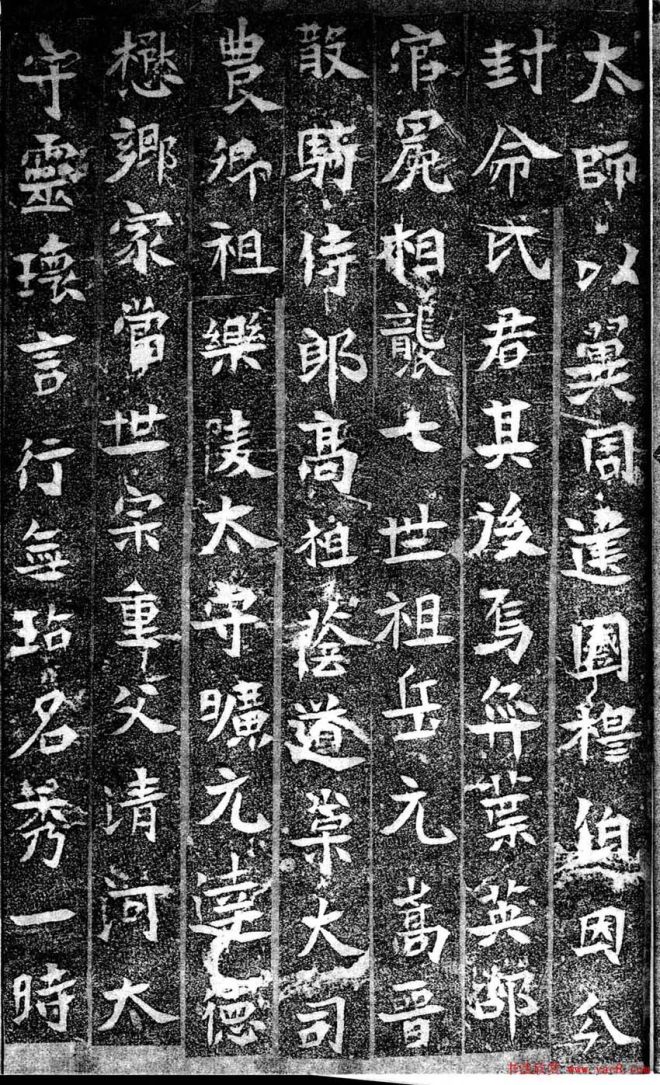 太師以翼周建國穆伯因分
封命氏君其後焉弈葉英邵
官冕相襲七世祖岳元嵩晉
散騎侍郎高祖蔭道榮大司
農卿祖樂陵太守曠元達德
懋鄉家當世宗重父清河太
守靈瓌言行無玷名秀一時
书法欣赏 www.yac8.com